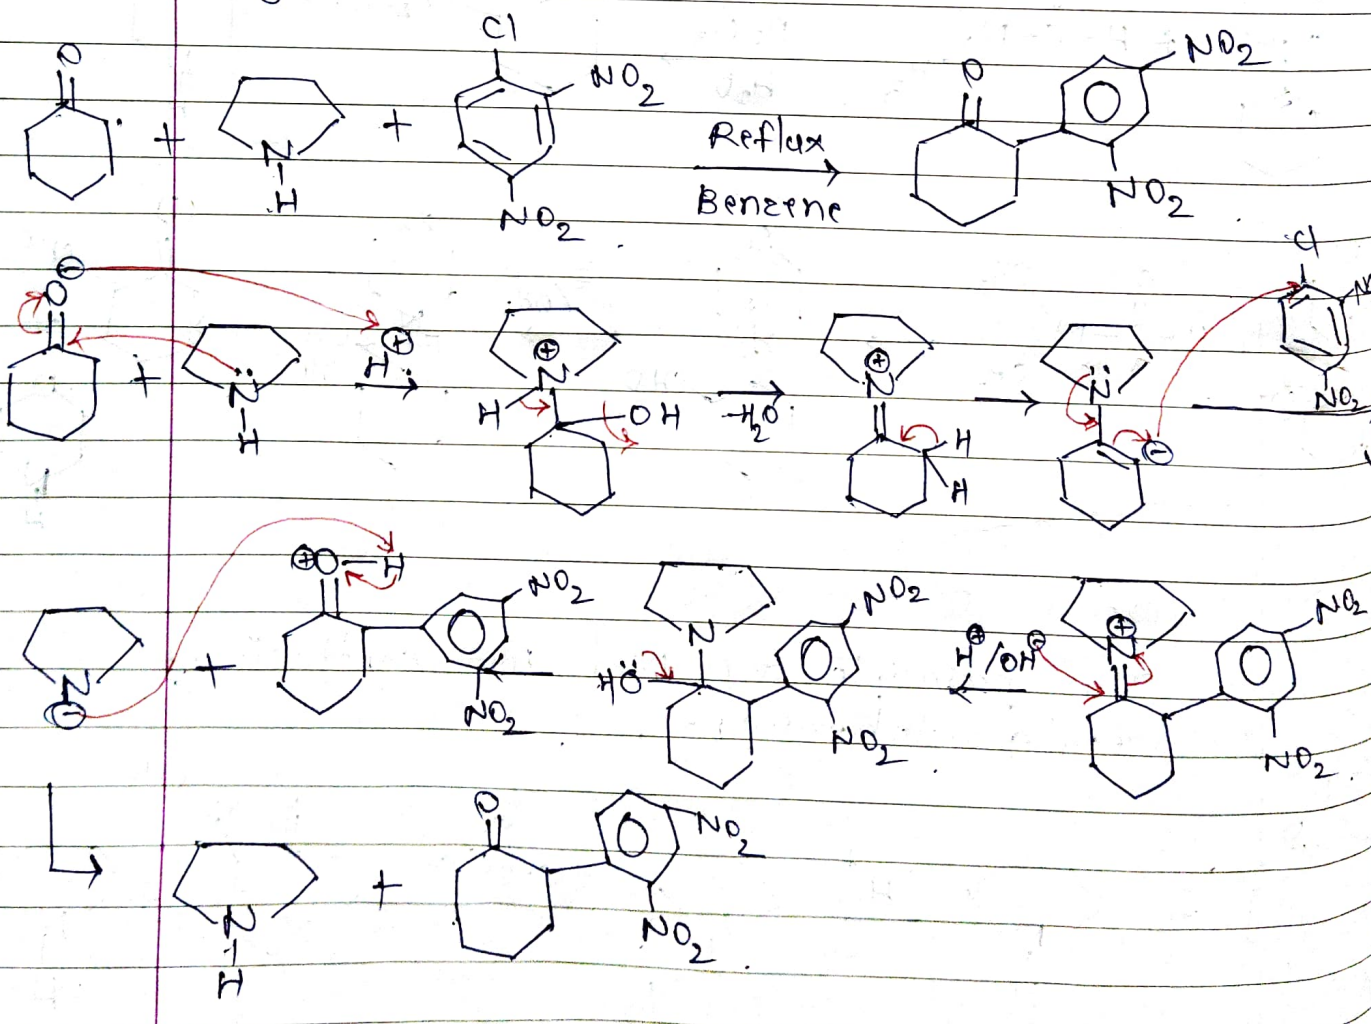 O + N H + Cl NO2 NO2 Reflux Benzene O NO2 NO2
⊖ O + N̈ H H⊕ H N⊕ OH -H2O N⊕ H H N̈ ⊖ Cl N NO2
N ⊖ + ⊕O-H NO2 NO2 HÖ N NO2 NO2 H⊕/OH⊖ N⊕ NO2 NO2
N H + O NO2 NO2